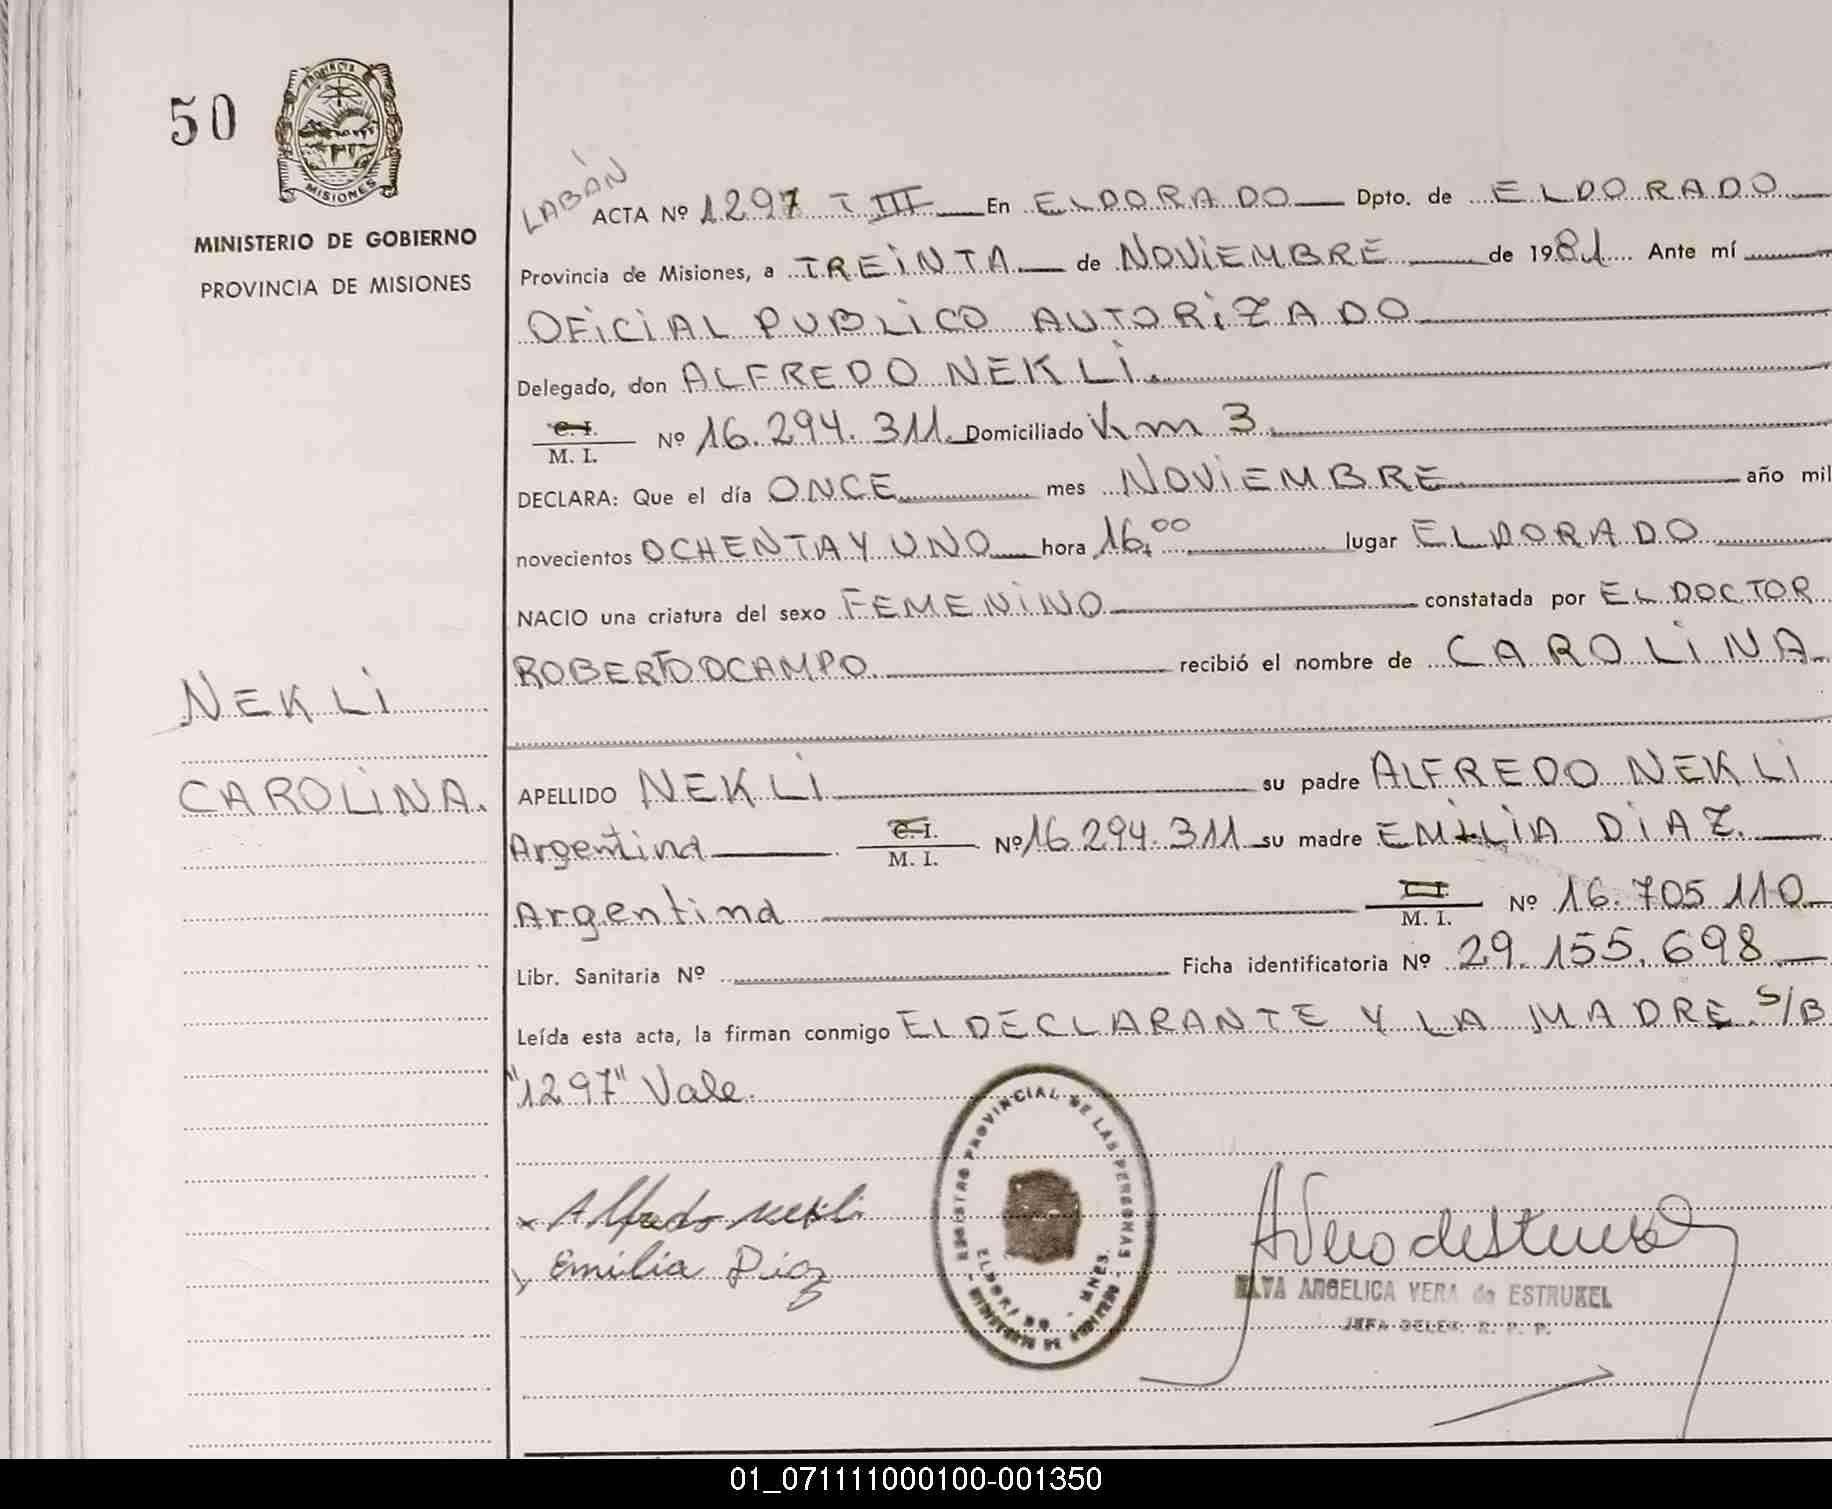 50
PROVINCIA
MISIONES
MINISTERIO DE GOBIERNO
PROVINCIA DE MISIONES
NEKLI
CAROLINA.
LABAN
ACTA Nº 1297 T III En ELDORADO Dpto. de ELDORADO
Provincia de Misiones, a TREINTA de NOVIEMBRE de 1981 Ante mí
OFICIAL PUBLICO AUTORIZADO
Delegado, don ALFREDO NEKLI.
C. I.
M. I. Nº 16.294.311. Domiciliado Km 3.
DECLARA: Que el día ONCE mes NOVIEMBRE año mil
novecientos OCHENTA Y UNO hora 16.00 lugar ELDORADO
NACIO una criatura del sexo FEMENINO constatada por EL DOCTOR
ROBERTO OCAMPO. recibió el nombre de CAROLINA.
APELLIDO NEKLI su padre ALFREDO NEKLI
Argentina C. I. M. I. Nº 16.294.311 su madre EMILIA DIAZ.
Argentina M. I. Nº 16.705.110
Libr. Sanitaria Nº Ficha identificatoria Nº 29.155.698
Leída esta acta, la firman conmigo EL DECLARANTE Y LA MADRE. S/B
"1297" Vale.
x Alfredo Nekli
Emilia Diaz
REGISTRO PROVINCIAL DE LAS PERSONAS
ELDORADO - MNES.
MINISTERIO DE GOBIERNO
ANGELICA VERA de ESTRUKEL
JEFA DELEG. R. P. P.
01_071111000100-001350